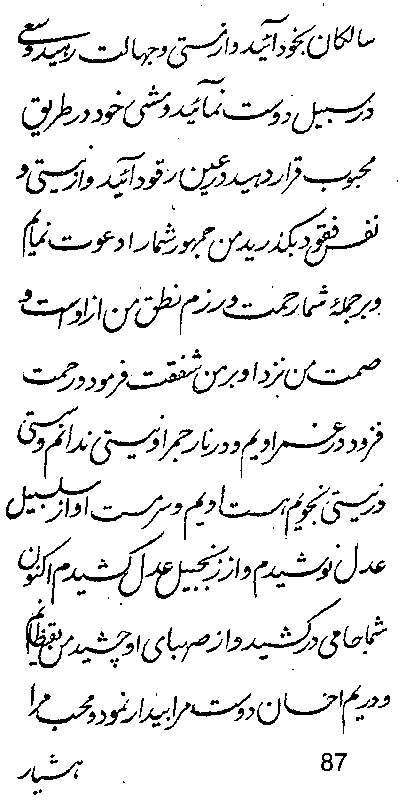 سالکان بخود آئید و از نیستی و جهالت رهید و سعی
در سبیل دوست نمائید و مشی خود در طریق
محبوب قرار دهید در عین رقود آئید و از نیستی و
نفس فقود بگذرید من جمهور شما را دعوت نمایم
و بر جملهٔ شما رحمت ورزم نطق من از اوست و
صمت من نزد او بر من شفقت فرمود و رحمت
فزود در غمر اویم و در نار جمر او نیستی ندانم و هستی
در نیستی نجویم هست اویم و سرمست او از سلسبیل
عدل نوشیدم و از زنجبیل عدل کشیدم اکنون
شما جامی درکشید و از صهبای او چشید من یقظانم
و در یم احسان دوست مرا بیدار نمود و محب مرا
هشیار
87